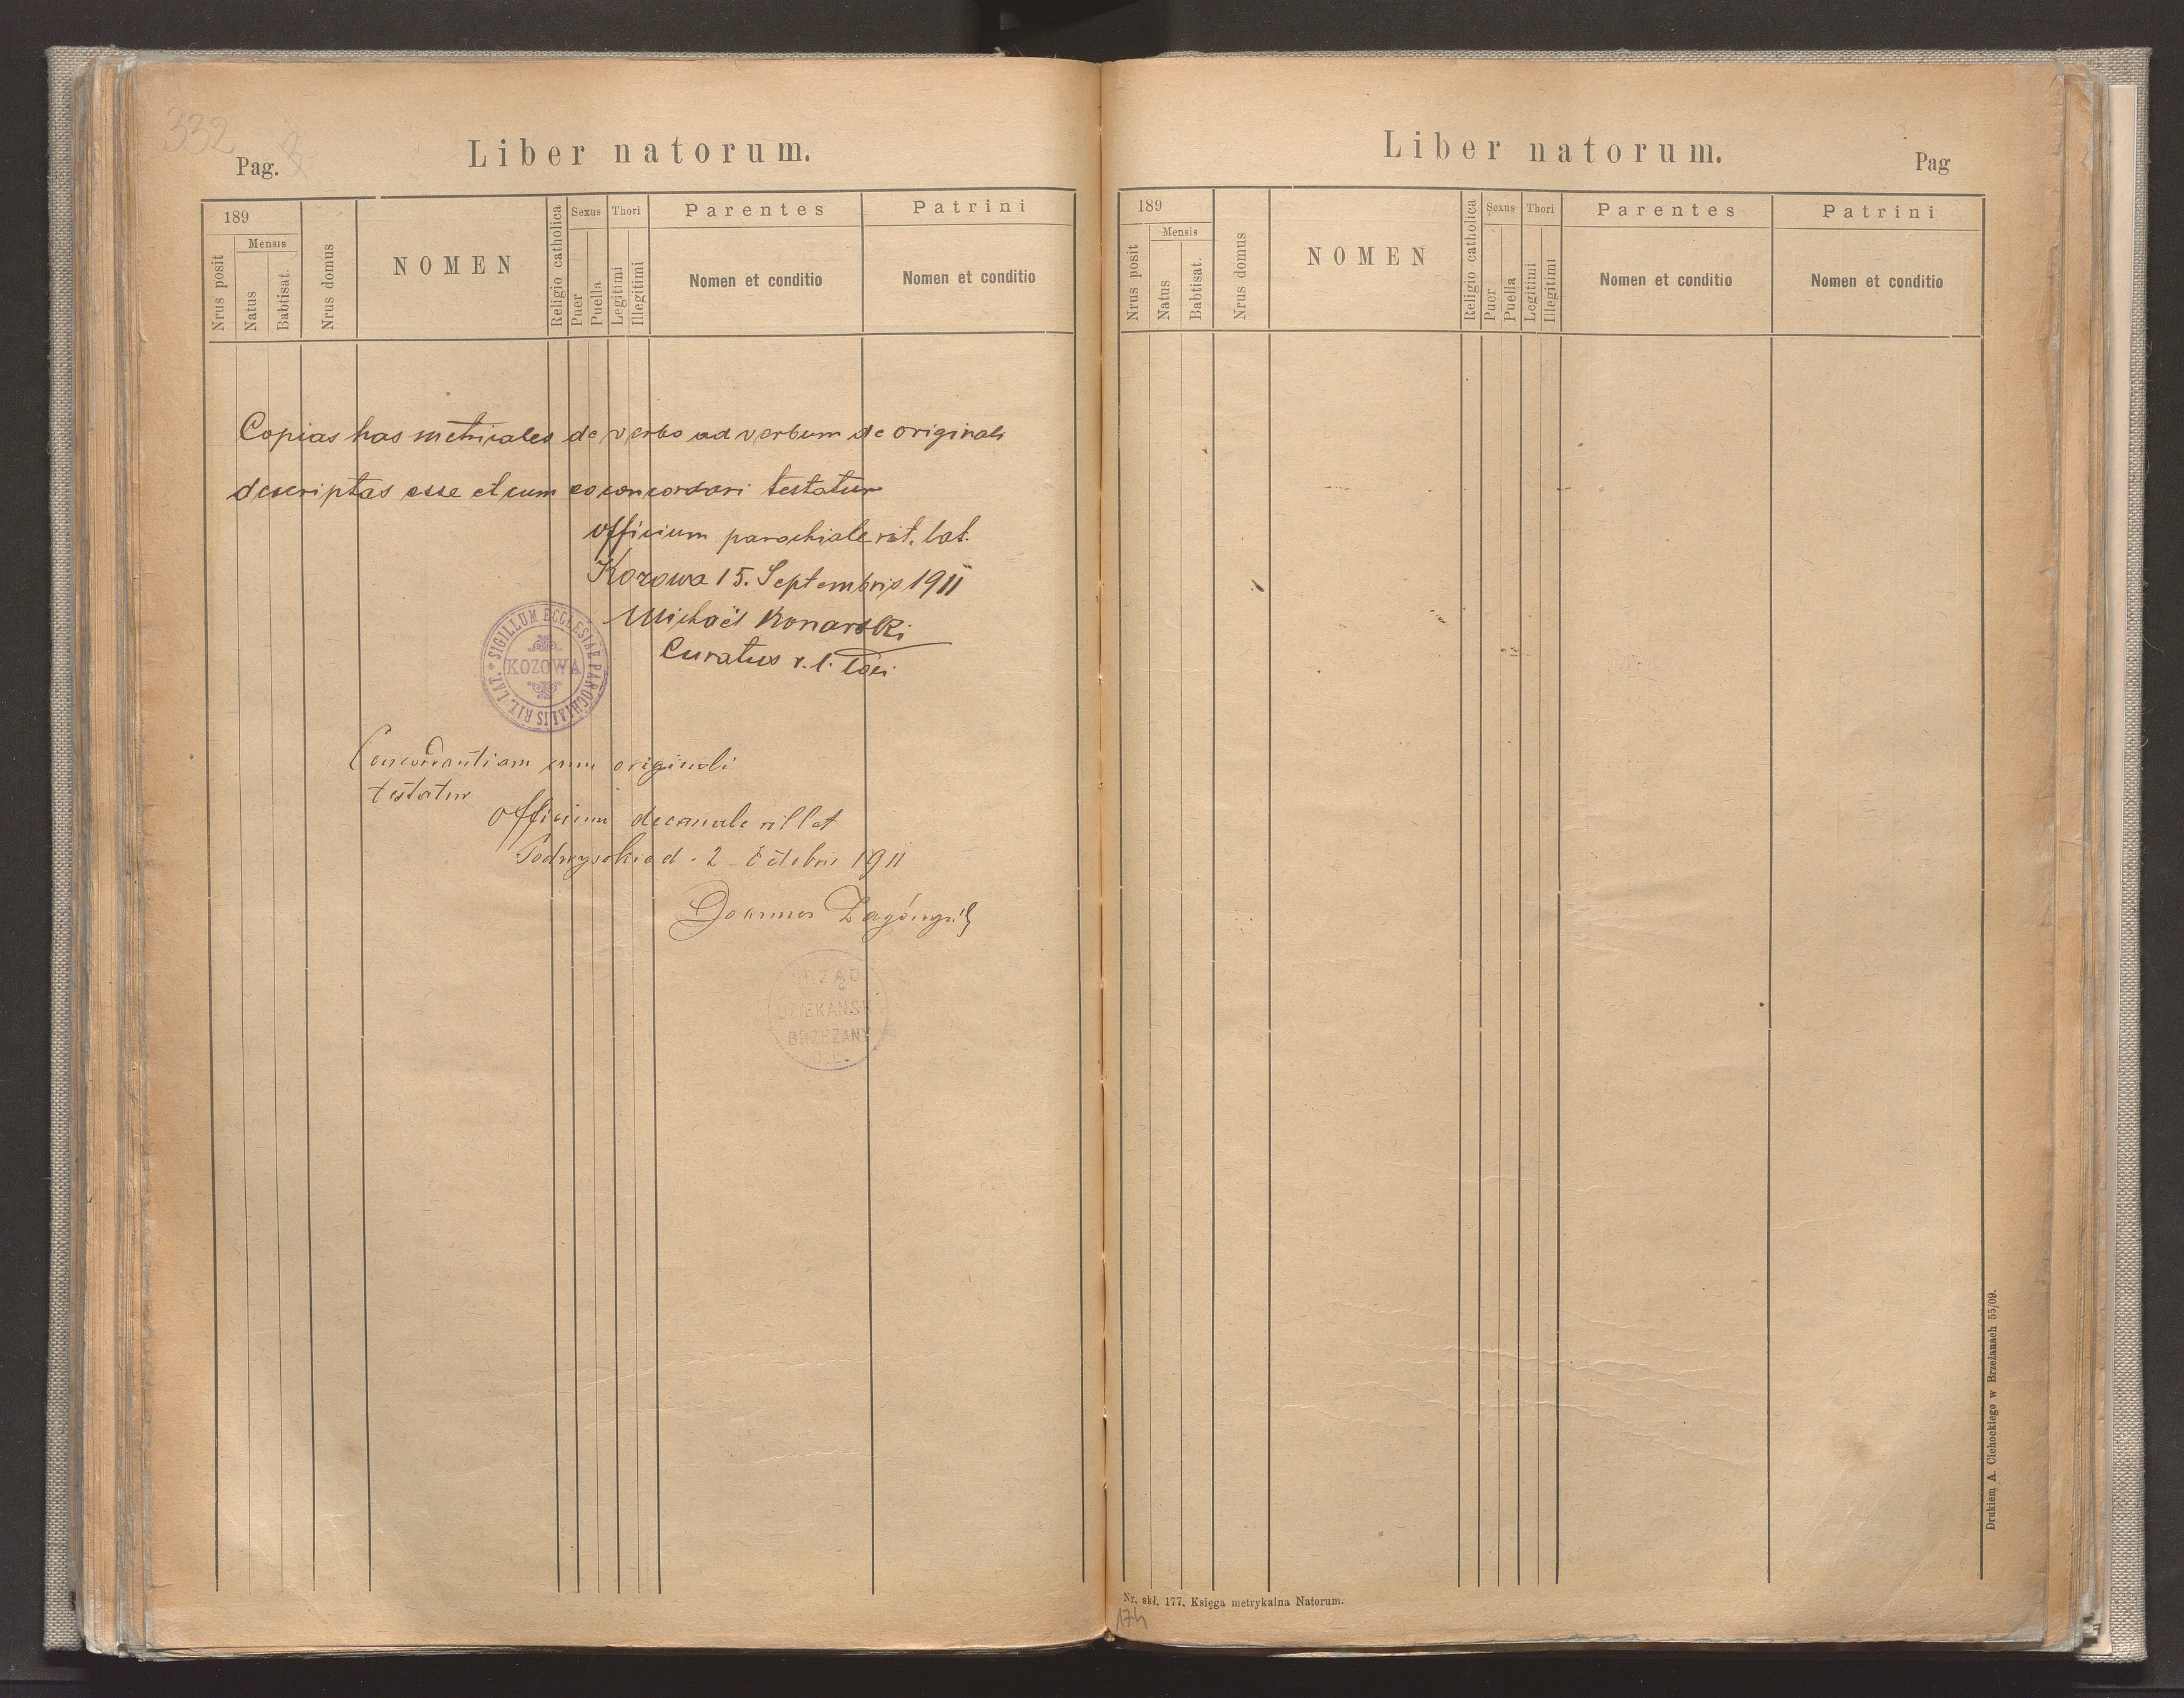 332
Pag.
Liber natorum.
189
Mensis
Nrus posit
Natus
Babtisat.
Nrus domus
NOMEN
Religio catholica
Sexus
Puer
Puella
Thori
Legitimi
Illegitimi
Parentes
Nomen et conditio
Patrini
Nomen et conditio
Copias has metricales de verbo ad verbum de originali
descriptas esse et cum eo concordari testatur
officium parochiale rit. lat.
Kozowa 15. Septembris 1911
Michaël Konarski
Curatus r. l. loci
SIGILLUM ECCLESIAE PAROCHIALIS RIT. LAT.
KOZOWA
Concordantiam cum originali
testatur
Officium decanale rit lat
Podwysokie d. 2 Octobris 1911
Joannes
URZĄD
DZIEKAŃSKI
BRZEŻANY
Liber natorum.
Pag
189
Mensis
Nrus posit
Natus
Babtisat.
Nrus domus
NOMEN
Religio catholica
Sexus
Puer
Puella
Thori
Legitimi
Illegitimi
Parentes
Nomen et conditio
Patrini
Nomen et conditio
Drukiem A. Cichockiego w Brzeżanach 55/09.
Nr. skł. 177. Księga metrykalna Natorum.
174